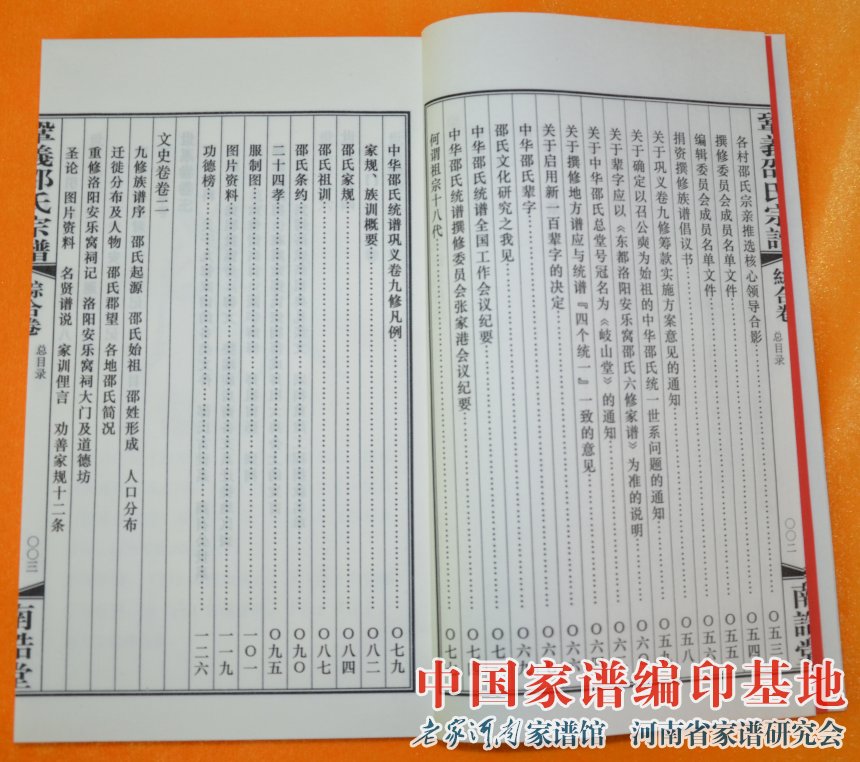 鞏義邵氏宗譜 綜合卷 总目录 〇〇二 南誥堂
各村邵氏宗亲推选核心领导合影 〇五三
撰修委员会成员名单文件 〇五四
编辑委员会成员名单文件 〇五五
捐资撰修族谱倡议书 〇五六
关于巩义卷九修筹款实施方案意见的通知 〇五八
关于确定以召公奭为始祖的中华邵氏统一世系问题的通知 〇五九
关于辈字应以《东都洛阳安乐窝邵氏六修家谱》为准的说明 〇六
关于中华邵氏总堂号冠名为《岐山堂》的通知 〇六
关于撰修地方谱应与统谱『四个统一』一致的意见 〇六
关于启用新一百辈字的决定 〇六
中华邵氏辈字 〇六
邵氏文化研究之我见 〇六九
中华邵氏统谱全国工作会议纪要 〇七
中华邵氏统谱撰修委员会张家港会议纪要 〇七
何谓祖宗十八代 〇七
中华邵氏统谱巩义卷九修凡例 〇七九
家规、族训概要 〇八二
邵氏家规 〇八四
邵氏祖训 〇八七
邵氏条约 〇九〇
二十四孝 〇九五
服制图 一〇一
图片资料 一一九
功德榜 一二六
文史卷卷二
九修族谱序 邵氏起源 邵氏始祖 邵姓形成 人口分布
迁徙分布及人物 邵氏郡望 各地邵氏简况
重修洛阳安乐窝祠记 洛阳安乐窝祠大门及道德坊
圣论 图片资料 名贤谱说 家训俚言 劝善家规十二条
鞏義邵氏宗譜 綜合卷 总目录 〇〇三 南誥堂
中国家谱编印基地
老家河南家谱馆 河南省家谱研究会